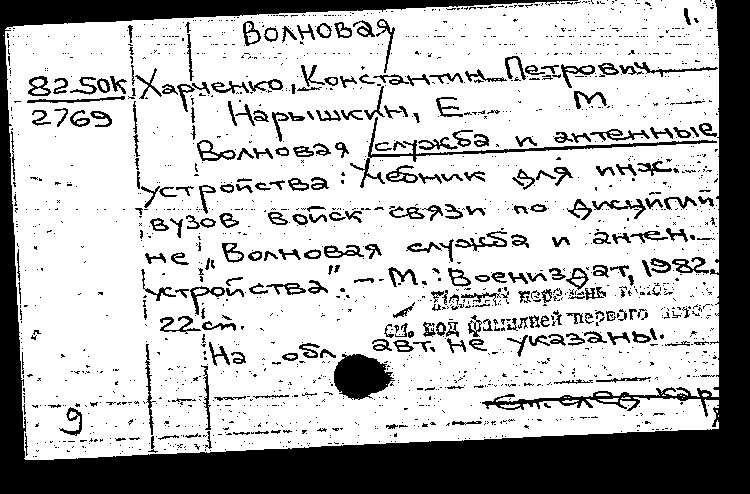 Волновая 1.
82.50К Харченко, Константин Петрович,
2769 Нарышкин, Е М
Волновая служба и антенные
устройства: Учебник для инж.
вузов войск связи по дисципли
не „Волновая служба и антен.
устройства". — М.: Воениздат, 1982.
22 см.
Полный перечень
см. под фамилией первого
На обл. авт. не указаны.
См. след кар
9